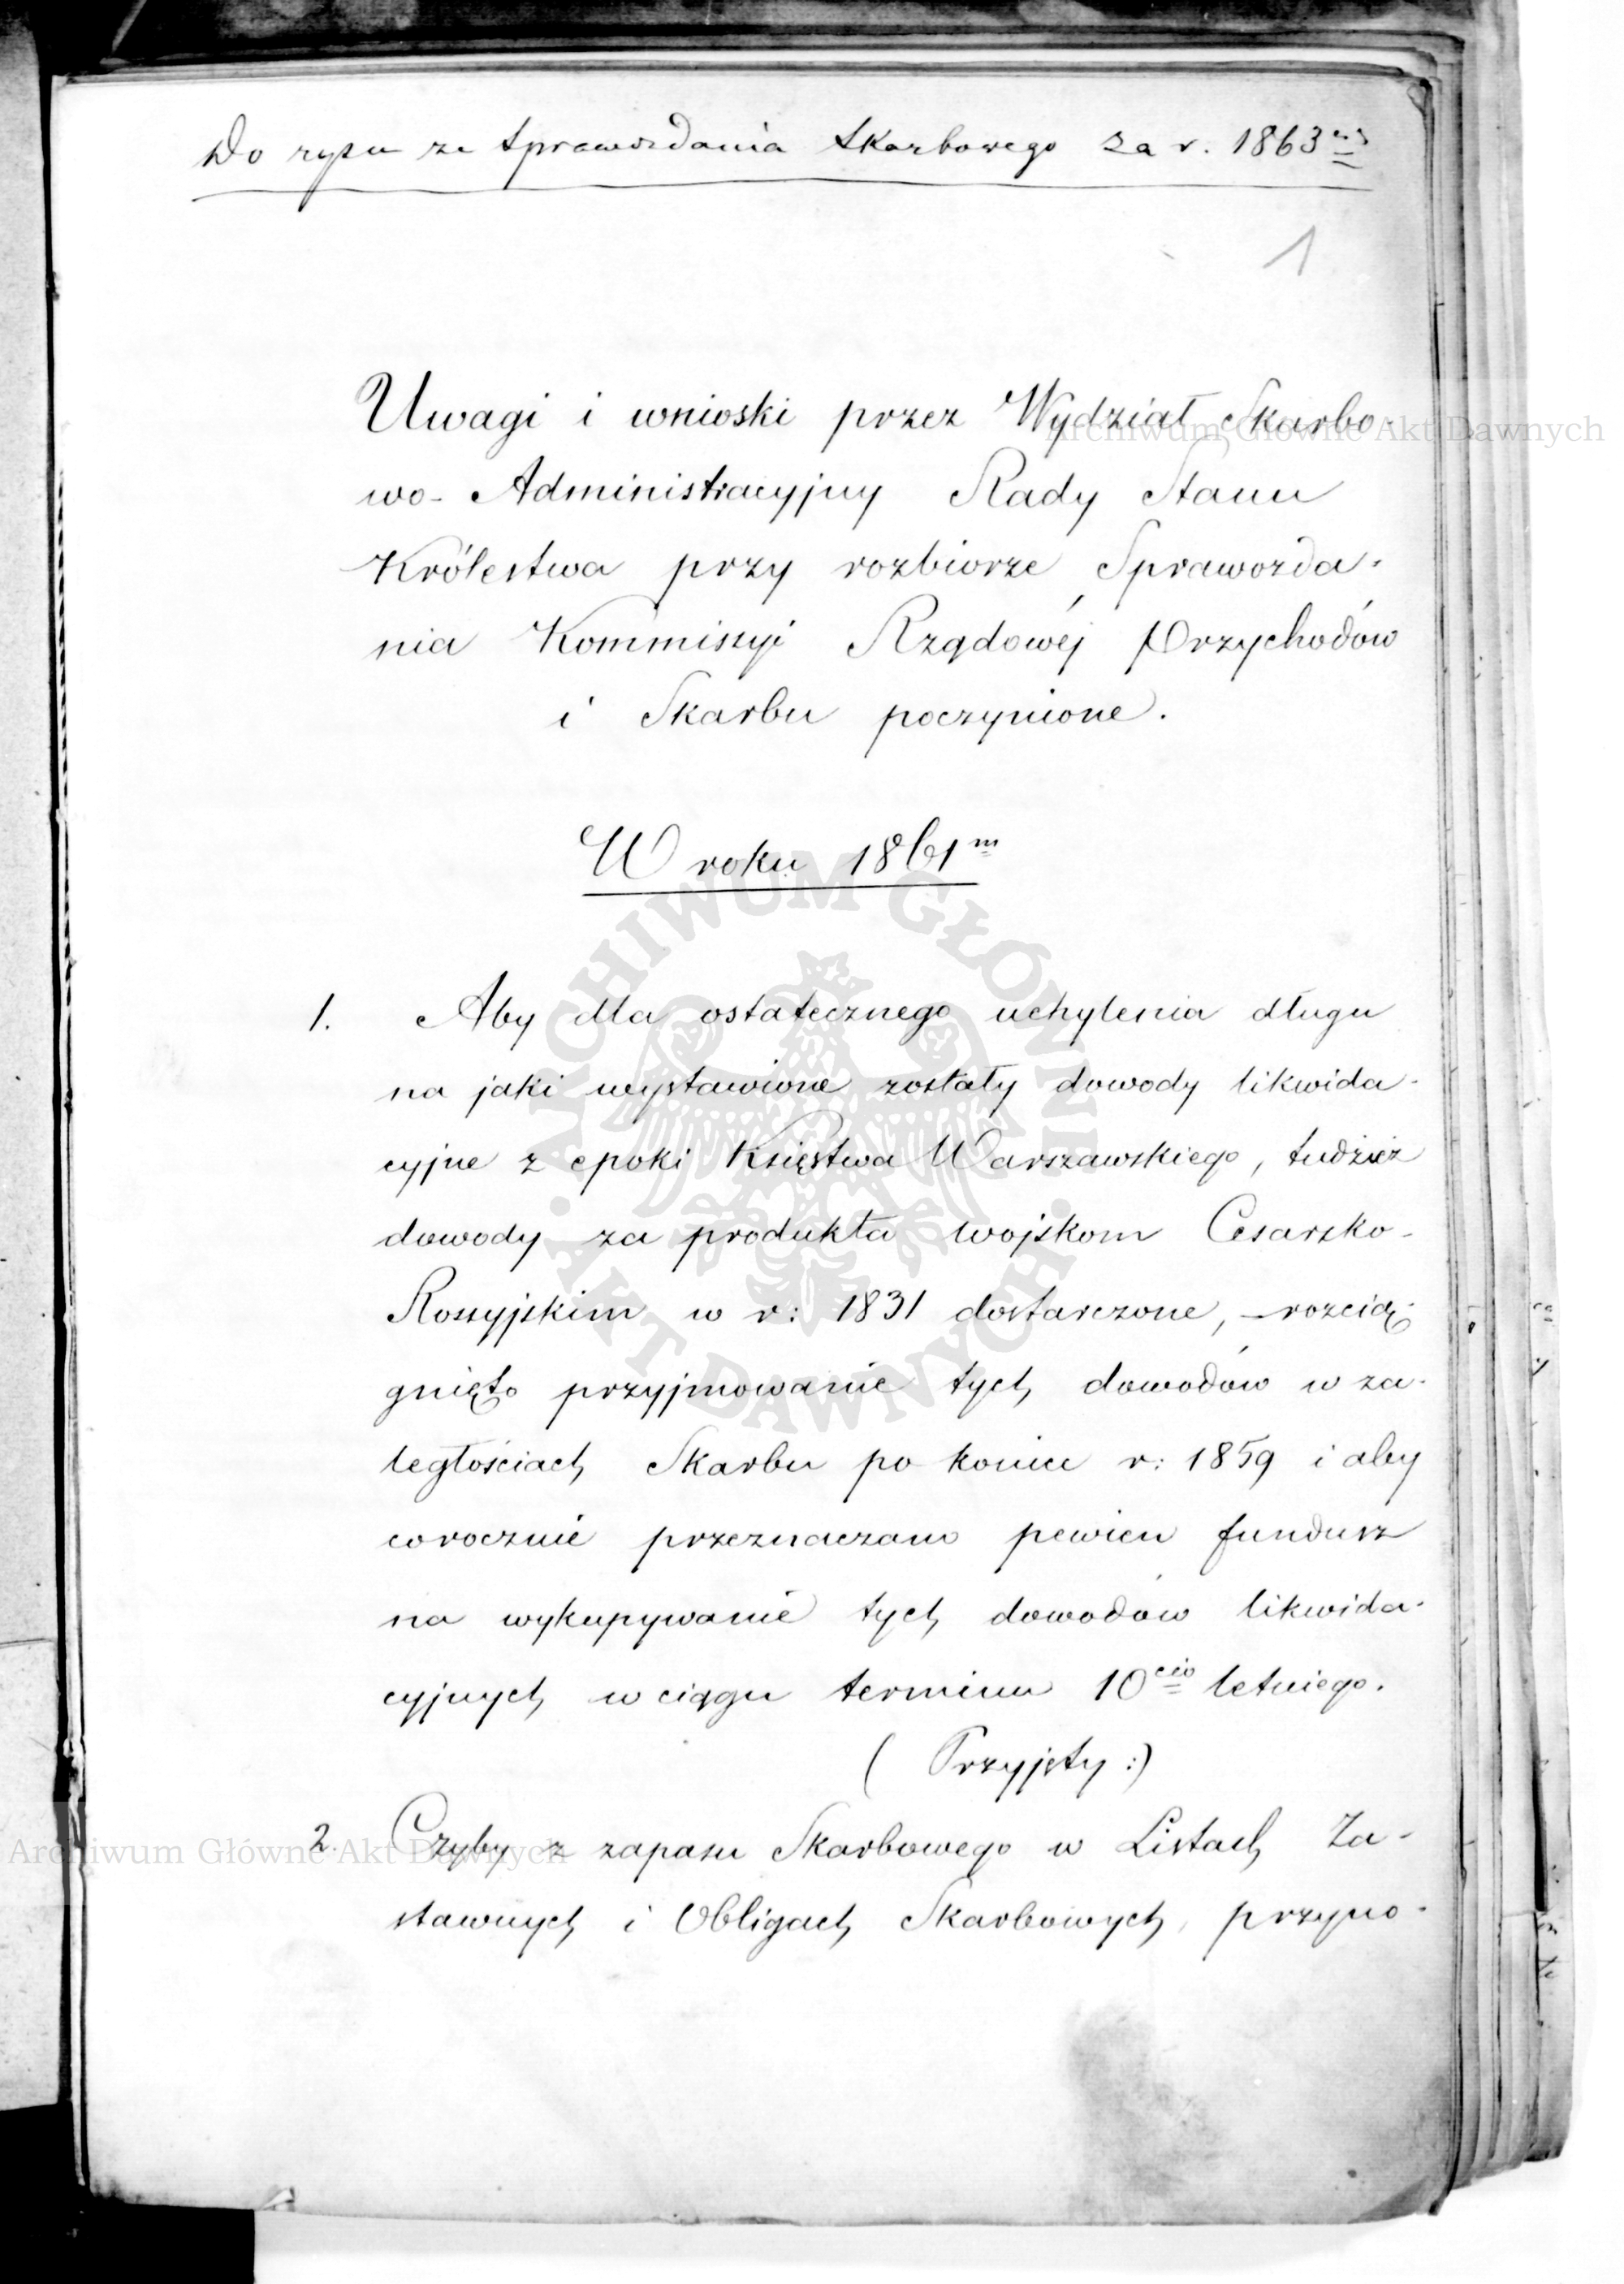 Do rysu ze Sprawozdania Skarbowego za r. 1863
1
Uwagi i wnioski przez Wydział Skarbo-
wo-Administracyjny Rady Stanu
Królestwa przy rozbiorze Sprawozda-
nia Kommissyi Rządowéj Przychodów
i Skarbu poczynione.
W roku 1861m
1. Aby dla ostatecznego uchylenia długu
na jaki wystawione zostały dowody likwida-
cyjne z epoki Księstwa Warszawskiego, tudzież
dowody za produkta wojskom Cesarsko-
Rossyjskim w r: 1831 dostarczone, – rozcią-
gnięto przyjmowanie tych dowodów w za-
ległościach Skarbu po koniec r: 1859 i aby
corocznie przeznaczano pewien fundusz
na wykupywanie tych dowodów likwida-
cyjnych w ciągu terminu 10cio letniego.
( Przyjęty :)
2. Czyby z zapasu Skarbowego w Listach Za-
stawnych i Obligach Skarbowych, przyno-
Archiwum Główne Akt Dawnych
Archiwum Główne Akt Dawnych
ARCHIWUM GŁÓWNE
AKT DAWNYCH